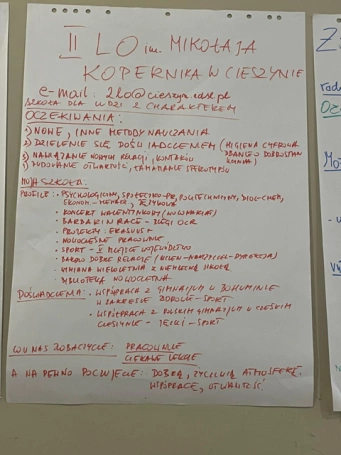 II LO im. MIKOŁAJA
KOPERNIKA W CIESZYNIE
e-mail: 2lo@cieszyn.edu.pl
SZKOŁA DLA LUDZI Z CHARAKTEREM
OCZEKIWANIA:
1) NOWE, INNE METODY NAUCZANIA
2) DZIELENIE SIĘ DOŚWIADCZENIEM (HIGIENA CYFROWA
DBANIE O DOBROSTAN
3) NAWIĄZANIE NOWYCH RELACJI, KONTAKTÓW
4) BUDOWANIE OTWARTOŚCI, ŁAMANIE STEREOTYPÓW
NASZA SZKOŁA:
PROFILE: PSYCHOLOGICZNY, SPOŁECZNO-PR, POLITECHNICZNY, BIOL-CHEM,
JĘZYKOWA
• KONCERT WALENTYNKOWY
• BIEGI OCR
• PROJEKTY: ERASMUS+
• NOWOCZESNE PRACOWNIE
• SPORT - II MIEJSCE W
• BARDZO DOBRE RELACJE (UCZEŃ-NAUCZYCIEL-DYREKCJA)
• WYMIANA Z NIEMIECKĄ SZKOŁĄ
• BIBLIOTEKA NOWOCZESNA
DOŚWIADCZENIA: • WSPÓŁPRACA Z GIMNAZJUM W BOHUMINIE
W ZAKRESIE ZDROWIE-SPORT
• WSPÓŁPRACA Z POLSKIM GIMNAZJUM W CZESKIM
CIESZYNIE - SPORT
W NAS ZOBACZYCIE: PRACOWNIE
CIEKAWE LEKCJE
A NA PEWNO POCZUJECIE: DOBRĄ, ŻYCZLIWĄ ATMOSFERĘ,
WSPÓŁPRACĘ, OTWARTOŚĆ